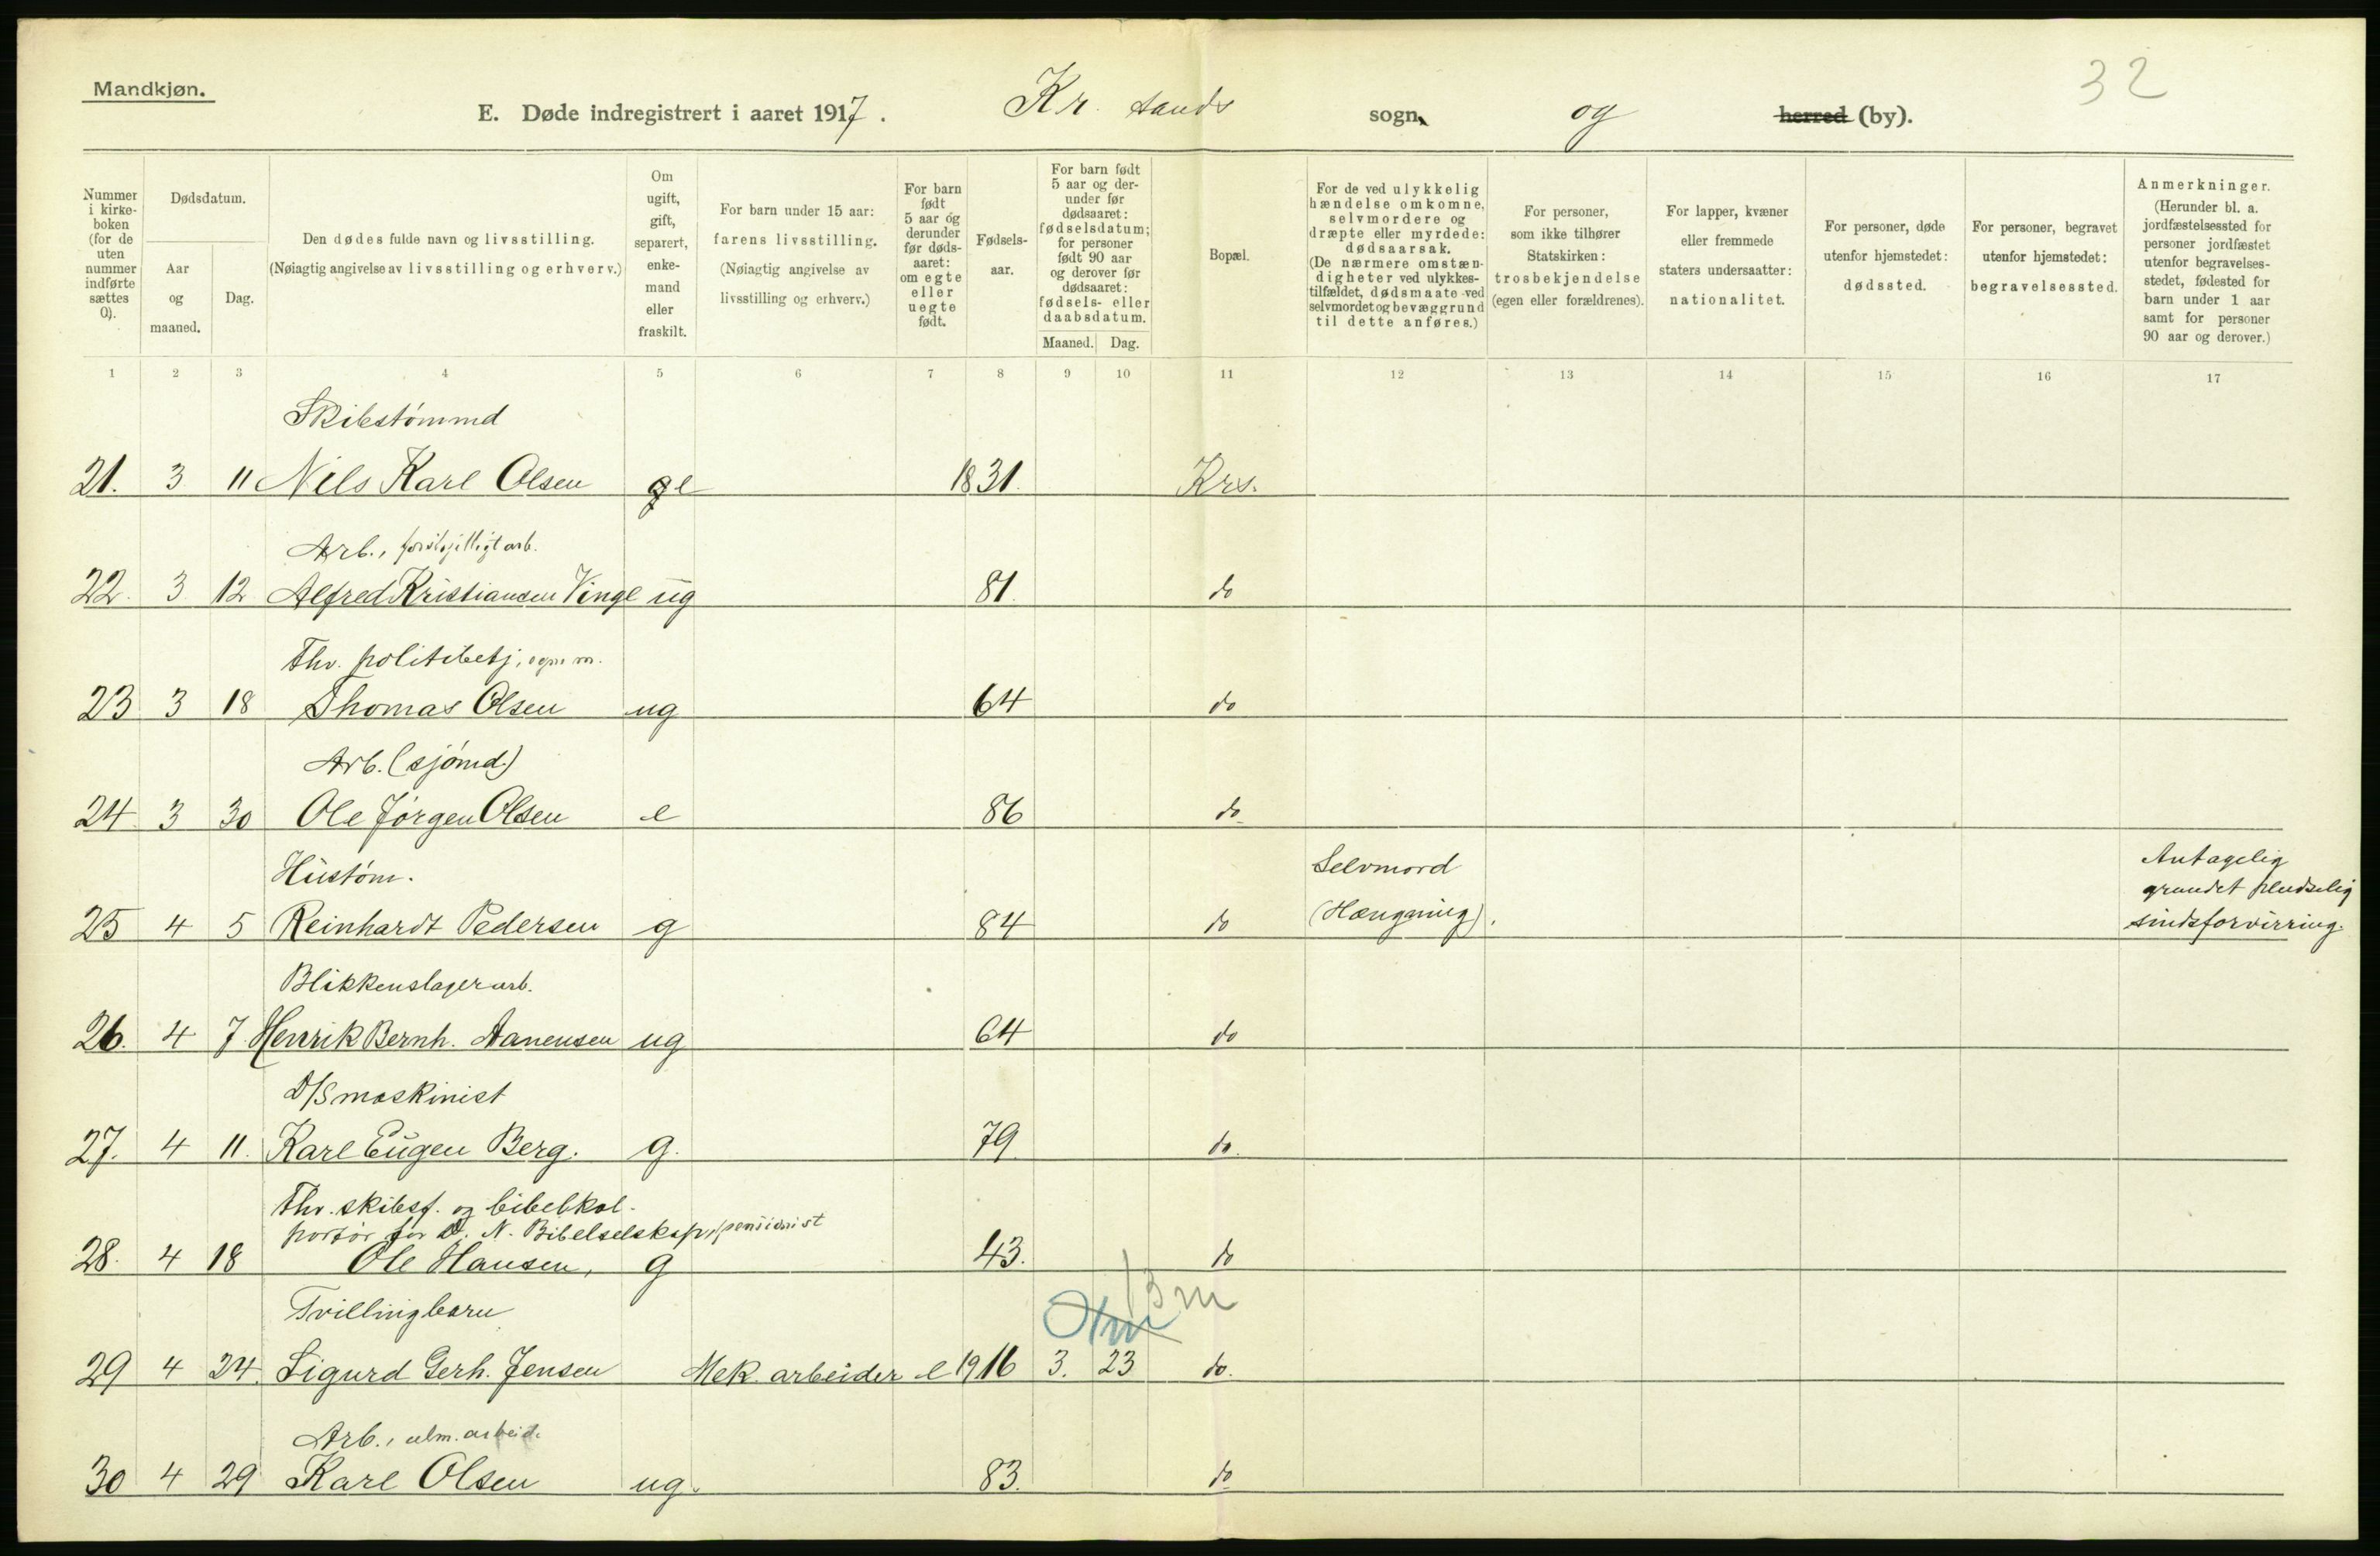 Mandkjøn.
32
E. Døde indregistrert i aaret 1917. Kr. sands sogn og herred (by).
Nummer i kirke-boken (for de uten nummer indførte sættes 0).
Dødsdatum.
Aar og maaned.
Dag.
Den dødes fulde navn og livsstilling.
(Nøiagtig angivelse av livsstilling og erhverv.)
Om ugift, gift, separert, enke-mand eller fraskilt.
For barn under 15 aar:
farens livsstilling.
(Nøiagtig angivelse av livsstilling og erhverv.)
For barn født 5 aar og derunder før døds-aaret: om egte eller uegte født.
Fødsels-aar.
For barn født 5 aar og der-under før dødsaaret: fødselsdatum; for personer født 90 aar og derover før dødsaaret: fødsels- eller daabsdatum.
Maaned. Dag.
Bopæl.
For de ved ulykkelig hændelse omkomne, selvmordere og dræpte eller myrdede: dødsaarsak. (De nærmere omstæn-digheter ved ulykkes-tilfældet, dødsmaate ved selvmordet og bevæggrund til dette anføres.)
For personer, som ikke tilhører Statskirken: trosbekjendelse (egen eller forældrenes).
For lapper, kvæner eller fremmede staters undersaatter: nationalitet.
For personer, døde utenfor hjemstedet: dødssted.
For personer, begravet utenfor hjemstedet: begravelsessted.
Anmerkninger. (Herunder bl. a. jordfæstelsessted for personer jordfæstet utenfor begravelses-stedet, fødested for barn under 1 aar samt for personer 90 aar og derover.)
1 2 3 4 5 6 7 8 9 10 11 12 13 14 15 16 17
Skibstømmd
21. 3 11 Nils Karl Olsen e 1831. Krs.
Arb., forskjelligt arb.
22. 3 12 Alfred Kristiansen Vinge ug 81. do
Fhv. politibetj.
23 3 18 Thomas Olsen ug 64 do
Arb. (sjømd.)
24 3 30 Ole Jørgen Olsen e 86 do
Hustøm. Selvmord Antagelig
grundet pludselig
25 4 5 Reinhardt Pedersen g 84 do (Hængning). sindsforvirring.
Blikkenslagerarb.
26. 4 7 Henrik Bernh. Aanensen ug 64 do
D/S maskinist
27. 4 11. Karl Eugen Berg. g. 79. do.
Fhv. skibsf. og bibelkol-
portør for D. N. Bibelselskap, pensionist
28. 4 18 Ole Hansen, g 43. do
Tvillingbarn 13 m
29 4 24. Sigurd Gerh. Jensen Mek. arbeider e 1916 3. 23 do.
Arb., alm. arbeid.
30 4 29 Karl Olsen ug. 83. do